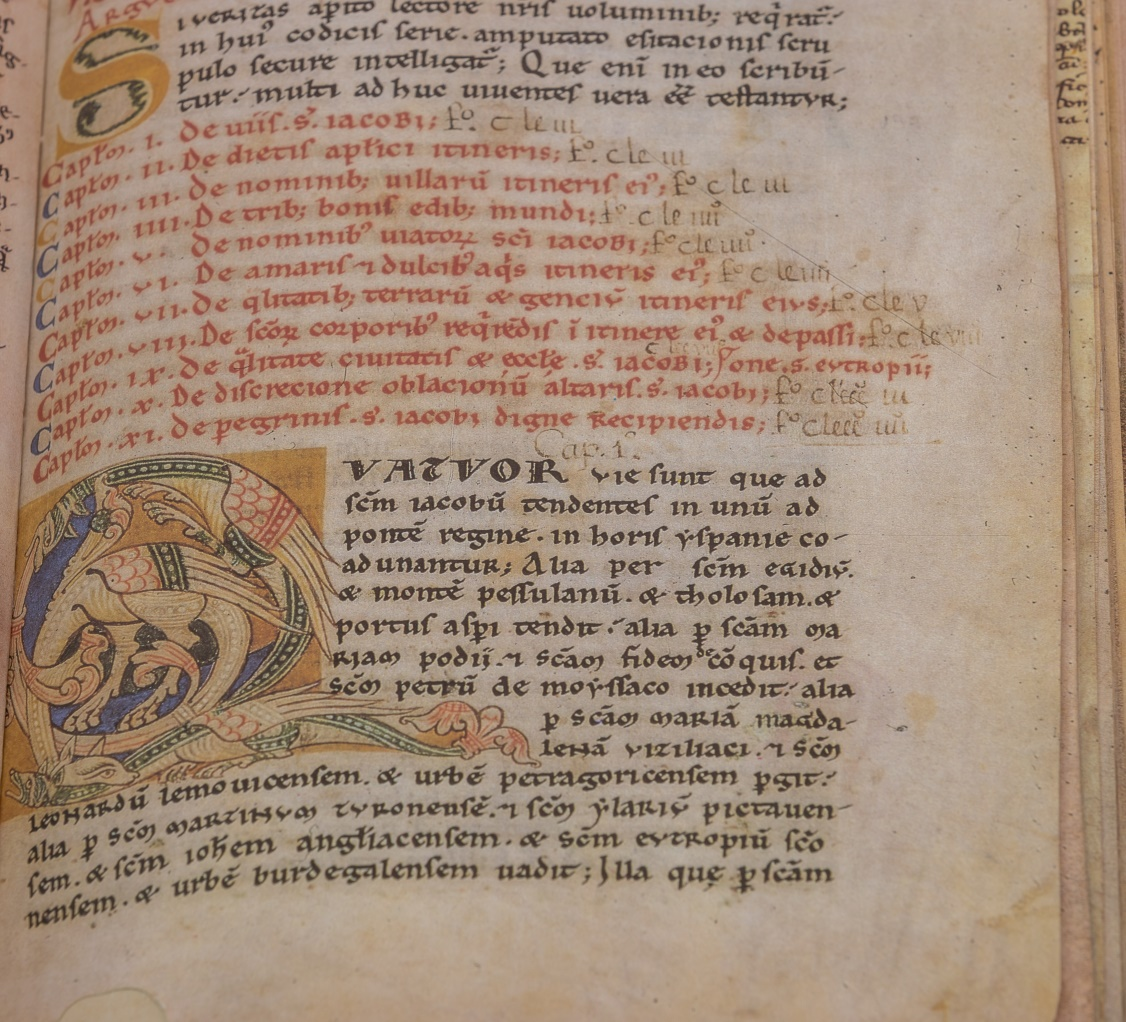 Argu
Si ueritas aꝑito lectore nr̄is uoluminib; reqͥrat͛.
in huiꝰ codicis serie. amputato esitacionis scru
pulo secure intelligat͛; Que eni᷒ in eo scribū-
tur. multi ad huc uiuentes uera eē testantur;
Capłm. I. De uiis. s. iacobi; fo. c le iii
Capłm. II. De dietis apłici itineris; fo. c le iii
Capłm. III. De nominib; uillarū itineris eiꝰ; fo. c le iii
Capłm. IIII. De trib; bonis edib; mundi; fo. c le iiii
Capłm. V. De nominibꝰ uiatoꝝ sc̄i iacobi; fo c le iiii
Capłm. VI. De amaris ⁊ dulcibꝰ aqͥs itineris eiꝰ; fo c le iiii
Capłm. VII. De qlitatib; terrarū & genciū itineris eius; fo. c le v
Capłm. VIII. De sc̄oꝝ corporibꝰ reqͥrēdis ī itinere eiꝰ & de passi; fo. c le viii
Capłm. IX. De qͣlitate ciuitatis & eccłe. s. iacobi; one. s. eutropii;
Capłm. X. De discrecione oblacionū altaris. s. iacobi; fo
Capłm. XI. De peregrinis. s. iacobi digne recipiendis; fo
Cap. 1.
QVATVOR vie sunt que ad
sc̄m iacobū tendentes in unū ad
pontē regine. in horis ẏspanie co-
adunantur; Alia per sc̄m egidiū.
& montē pessulanū. & tholosam. &
portus asꝑi tendit. alia ꝑ sc̄am ma
riam podij. ⁊ sc̄am fidem de cōquis. et
sc̄m petrū de moẏssaco incedit. alia
ꝑ sc̄am mariā magda-
lenā viziliaci. ⁊ sc̄m
leonardū lemouicensem. & urbē petragoricensem ꝑgit.
alia ꝑ sc̄m martinum turonensē. ⁊ sc̄m ẏlariū pictauen-
sem. & sc̄m ioħem angłiacensem. & sc̄m eutropiū sc̄o
nensem. & urbē burdegalensem uadit; Illa quę ꝑ sc̄am